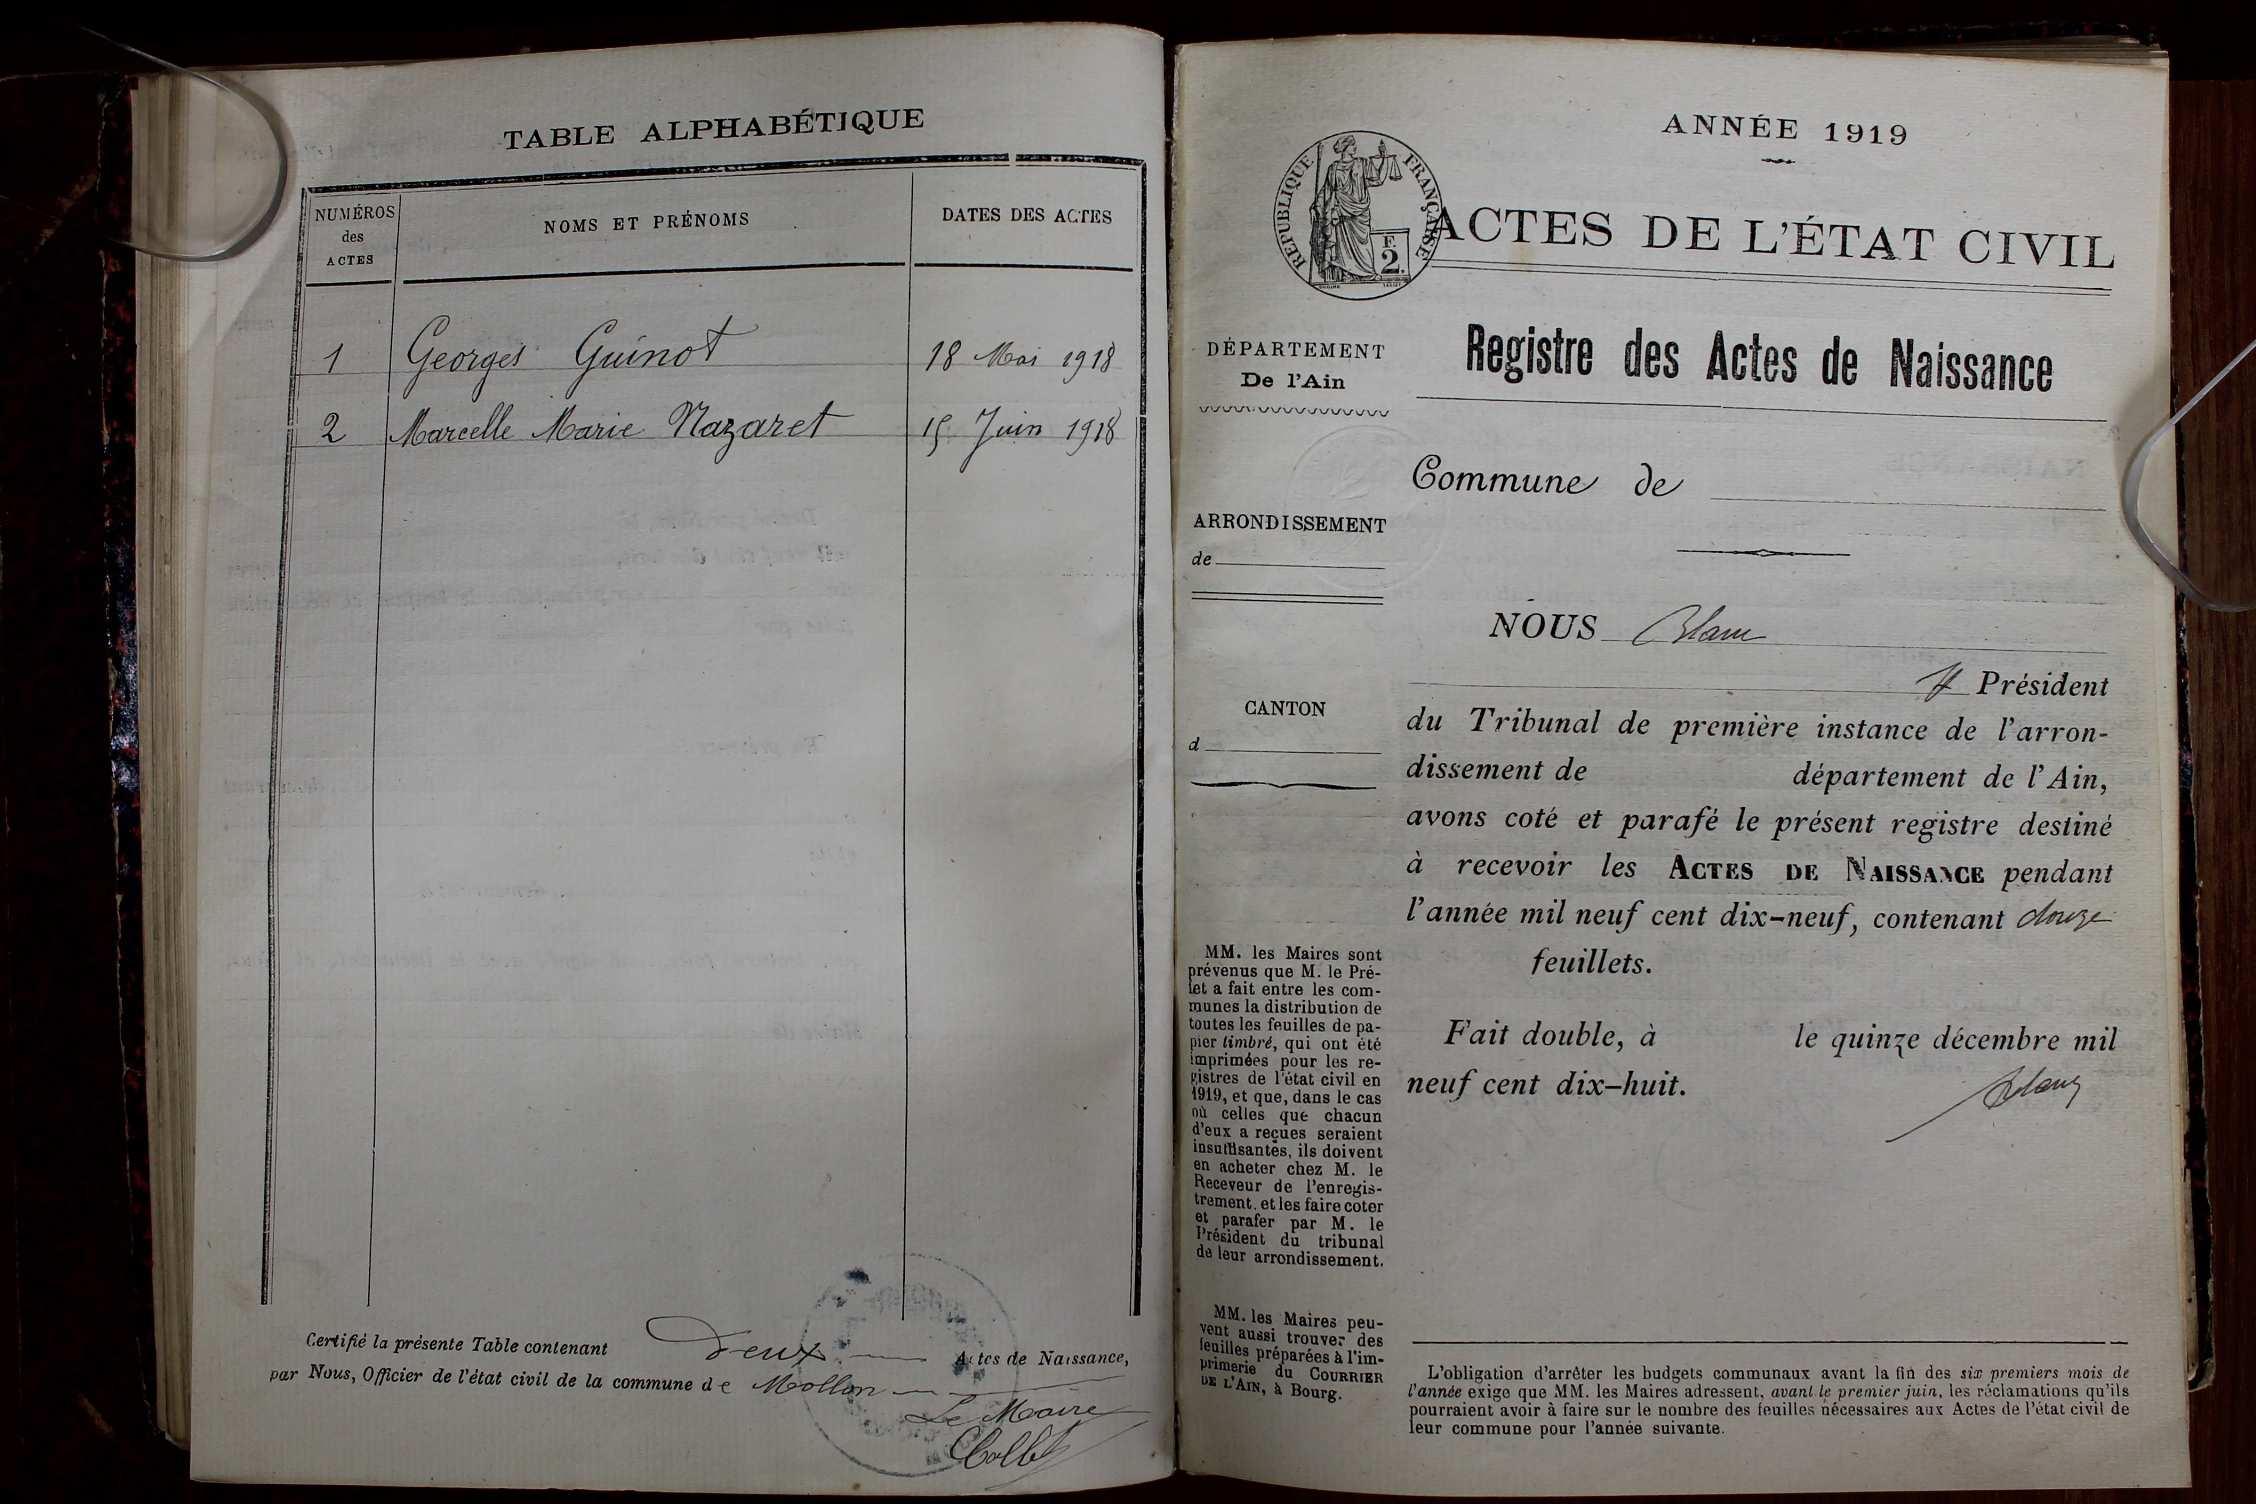 TABLE ALPHABÉTIQUE
NUMÉROS
des
ACTES
NOMS ET PRÉNOMS
DATES DES ACTES
1 Georges Guinot 18 Mai 1918
2 Marcelle Marie Nazaret 15 Juin 1918
Certifié la présente Table contenant deux Actes de Naissance,
par Nous, Officier de l'état civil de la commune de Mollon
Le Maire
ANNÉE 1919
RÉPUBLIQUE FRANÇAISE
F.
2.
ACTES DE L'ÉTAT CIVIL
Registre des Actes de Naissance
DÉPARTEMENT
De l'Ain
Commune de
ARRONDISSEMENT
de
CANTON
d
NOUS Blanc
Président
du Tribunal de première instance de l'arron-
dissement de département de l'Ain,
avons coté et parafé le présent registre destiné
à recevoir les ACTES DE NAISSANCE pendant
l'année mil neuf cent dix-neuf, contenant douze
feuillets.
Fait double, à le quinze décembre mil
neuf cent dix-huit.
Blanc
MM. les Maires sont
prévenus que M. le Pré-
fet a fait entre les com-
munes la distribution de
toutes les feuilles de pa-
pier timbré, qui ont été
imprimées pour les re-
gistres de l'état civil en
1919, et que, dans le cas
où celles que chacun
d'eux a reçues seraient
insuffisantes, ils doivent
en acheter chez M. le
Receveur de l'enregis-
trement, et les faire coter
et parafer par M. le
Président du tribunal
de leur arrondissement.
MM. les Maires peu-
vent aussi trouver des
feuilles préparées à l'im-
primerie du COURRIER
DE L'AIN, à Bourg.
L'obligation d'arrêter les budgets communaux avant la fin des six premiers mois de
l'année exige que MM. les Maires adressent, avant le premier juin, les réclamations qu'ils
pourraient avoir à faire sur le nombre des feuilles nécessaires aux Actes de l'état civil de
leur commune pour l'année suivante.